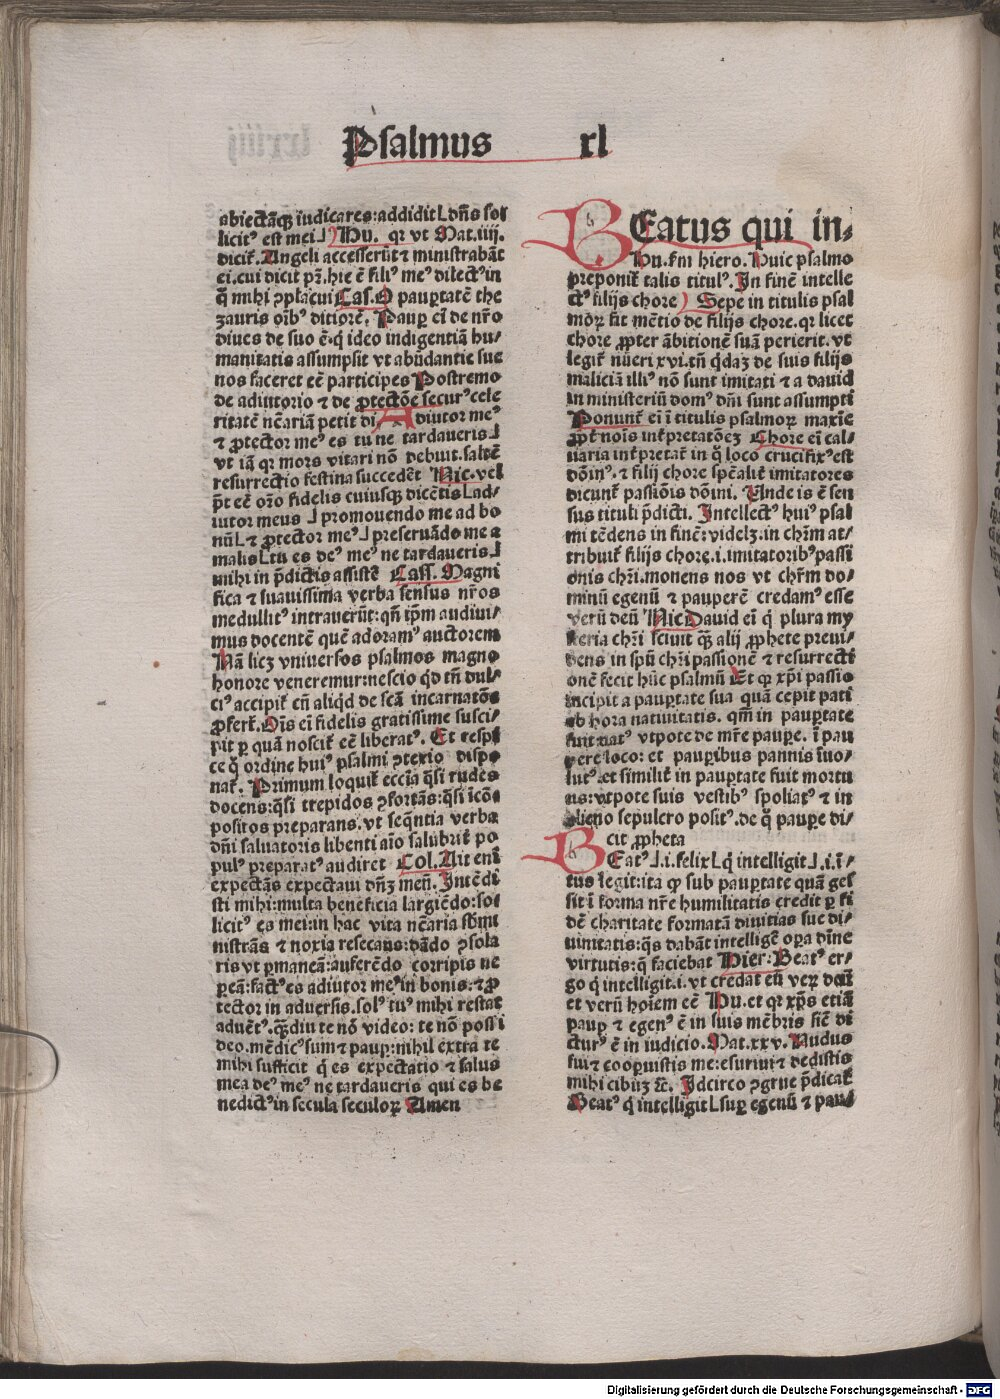 Psalmus xl
abiectāqꝫ iudicares: addidit ⌊dñs sol
licitꝰ est mei⌋ Hu. qꝛ vt Mat.iiij.
dicit̄. Angeli accesserūt ⁊ ministrabāt
ei. cui dicit pꝛ̄. hic ē filiꝰ meꝰ dilectꝰ in
q̄ mihi ꝯplacui Cas. O paup̱tatē the
zauris oīb̕ ditiorē. Paup̱ eī de nr̄o
diues de suo ē. q̇ ideo indigentiā hu⸗
manitatis assumpsit vt abūdantie sue
nos faceret eē participes Postremo
de adiutorio ⁊ de ꝓtectōe securꝰ cele
ritatē nc̄ariā petit dī. Adiutor meꝰ
⁊ ꝓtector meꝰ es tu ne tardaueris⌋
vt iā qꝛ mors vitari nō debuit. saltē
resurrectio festina succedēt Nic. vel
pt̄ eē or̄o fidelis cuiusqꝫ dicētis ⌊ad⸗
iutor meus⌋ promouendo me ad bo
nū ⌊⁊ ꝓtector meꝰ⌋ preseruādo me a
malis ⌊tu es deꝰ meꝰ ne tardaueris⌋
mihi in p̄dictis assistē Cass. Magni
fica ⁊ suauissima verba sensus nr̄os
medullitꝰ intrauerūt: qn̄ ip̄m audiui⸗
mus docentē quē adoramꝰ auctorem
Nā licꝫ vniuersos psalmos magno
honore veneremur: nescio qd̄ tn̄ dul⸗
ciꝰ accipit̄ cū aliqd̄ de scā incarnatōe
ꝓfert̄. Oīs eī fidelis gratissime susci⸗
pit p̱ quā noscit̄ eē liberatꝰ. Et respi
ce q̄ ordine huiꝰ psalmi ꝯtexio dispo
nat̄. Primum loquit̄ eccīa q̄si rudes
docens: q̄si trepidos ꝯfortās: q̄si īcō⸗
positos preparans. vt seq̄ntia verba
dn̄i saluatoris libenti aīo salubrit̄ po
pulꝰ preparatꝰ audiret Col. Ait enī
expectās expectaui dn̄ꝫ meū. Intēdi
sti mihi: multa beneficia largiēdo: sol
licitꝰ es mei: in hac vita nc̄aria sb̄mi
nistrās ⁊ noxia resecans: dādo ꝯsola
ris vt p̱maneā: auferēdo corripis ne
p̱eā: factꝰ es adiutor meꝰ in bonis. ⁊ ꝓ
tector in aduersis. solꝰ tuꝰ mihi restat
aduētꝰ. qꝙdiu te nō video: te nō possi
deo. mēdicꝰ sum ⁊ paup̱: nihil extra te
mihi sufficit q̇ es expectatio ⁊ salus
mea deꝰ meꝰ ne tardaueris qui es be
nedictꝰ in secula seculoꝝ Amen
BEatus qui in⸗
Hu. sm̄ hiero. Huic psalmo
preponit̄ talis titulꝰ. In finē intelle
ctꝰ filijs chore) Sepe in titulis psal
moꝝ fit mētio de filijs chore. qꝛ licet
chore ꝓpter ābitionē suā perierit. vt
legit̄ nūeri xvi. tn̄ q̇daꝫ de suis filijs
maliciā illiꝰ nō sunt imitati ⁊ a dauid
in ministeriū domꝰ dn̄i sunt assumpti
Ponunt̄ eī ī titulis psalmoꝝ maxīe
ꝓpt̄ noīs int̄pretatōeꝫ Chore eī cal⸗
uaria int̄pretat̄ in q̄ loco crucifixꝰ est
dōinꝰ. ⁊ filij chore spēalit̄ imitatores
dicunt̄ passiōis dōini. Unde is ē sen
sus tituli p̄dicti. Intellectꝰ huiꝰ psal
mi tēdens in finē: videlꝫ. in chr̄m at⸗
tribuit̄ filijs chore. i. imitatorib̕ passi
onis chr̄i. monens nos vt chr̄m do⸗
minū egenū ⁊ pauperē credamꝰ esse
verū deū Nic Dauid eī q̇ plura my
steria chr̄i sciuit qꝙ alij ꝓphete preui⸗
dens in spū chr̄i passionē ⁊ resurrecti
onē fecit hūc psalmū Et qꝛ xp̄i passio
incipit a paup̱tate sua quā cepit pati
ab hora natiuitatis. qm̄ in paup̱tate
fuit natꝰ vtpote de mr̄e paupe. ī pau
pere loco: et paup̱ibus pannis īuo⸗
lutꝰ. et similit̄ in paup̱tate fuit mortu
us: vtpote suis vestib̕ spoliatꝰ ⁊ in
alieno sepulcro positꝰ. de q̄ paup̱e di⸗
cit ꝓpheta
BEatꝰ⌋. i. felix ⌊q̇ intelligit⌋. i. ī⸗
tus legit: ita ꝙ sub paup̱tate quā ges
sit ī forma nr̄e humilitatis credit p̱ fi
dē charitate formatā diuitias sue di⸗
uinitatis: q̄s dabāt intelligē op̱a dīne
virtutis: q̄ faciebat Hier. Beatꝰ er⸗
go q̇ intelligit. i. vt credat eū veꝝ deū
et verū hoīem eē Hu. et qꝛ xp̄s etiā
paup̱ ⁊ egenꝰ ē in suis mēbris sic̄ di
cturꝰ ē in iudicio. Mat. xxv. Nudus
fui ⁊ cooꝑuistis me: esuriui ⁊ dedistis
mihi cibuꝫ ⁊c̄. Idcirco ꝯgrue p̄dicat̄
Beatꝰ q̇ intelligit ⌊sup̱ egenū ⁊ pau⸗
Digitalisierung gefördert durch die Deutsche Forschungsgemeinschaft - DFG